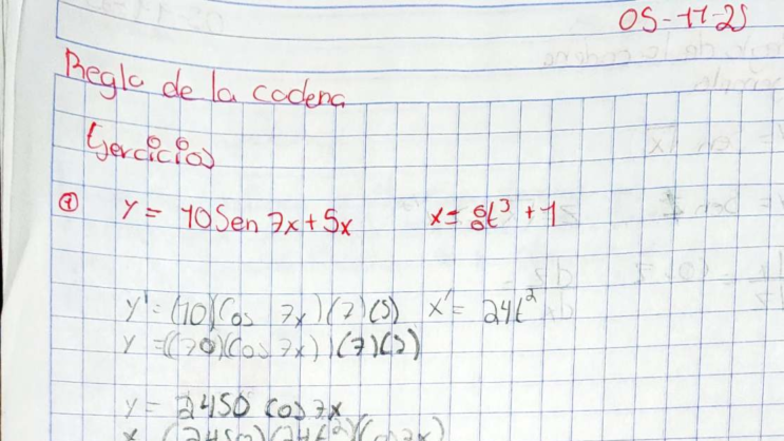 05-11-25
Regla de la cadena
Ejercicios
① y = 10 Sen 7x + 5x x = 8t³ + 1
y' = (10)(Cos 7x)(7)(5) x' = 24t²
y = ((70)(Cos 7x))(7)(5)
y = 2450 Cos 7x
x (2450)(24t²)(cos 7x)